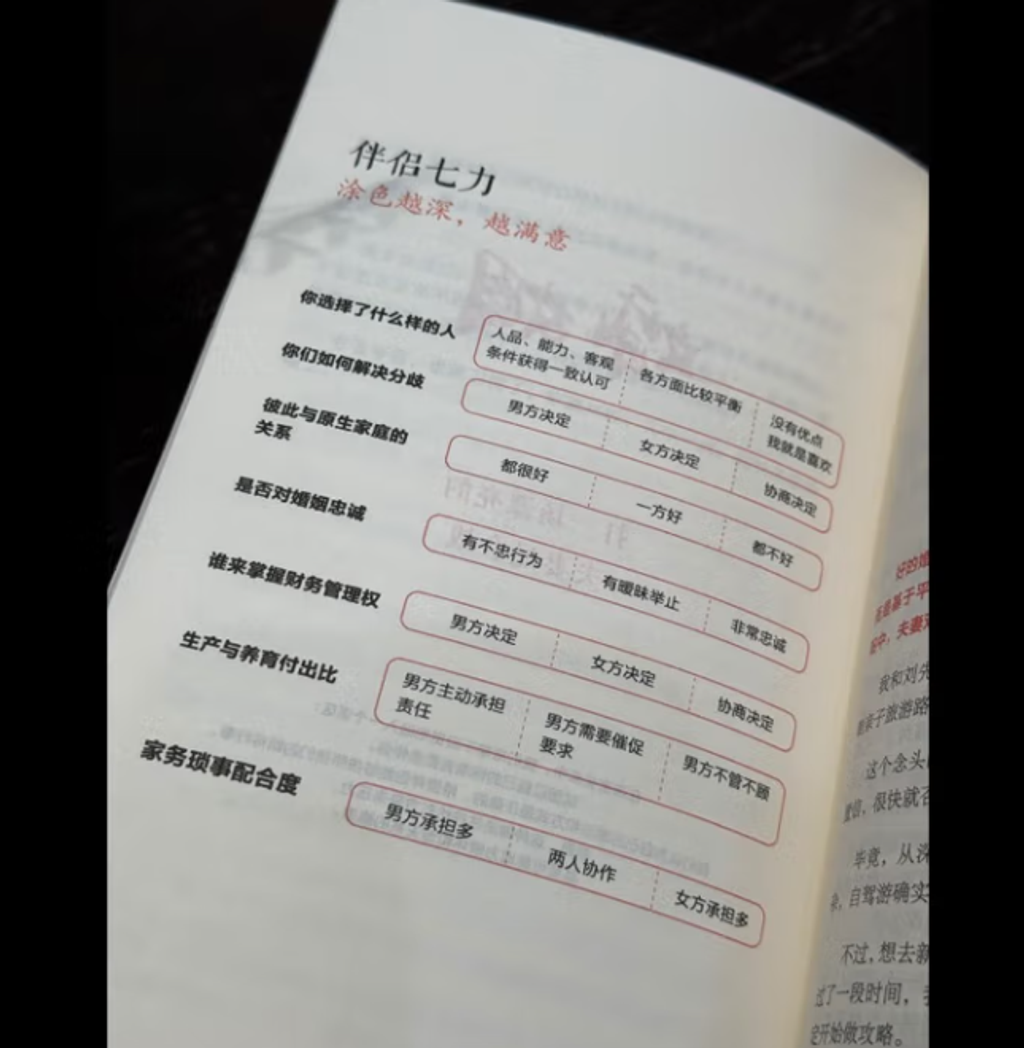 伴侣七力
涂色越深，越满意
你选择了什么样的人
人品、能力、客观
条件获得一致认可
各方面比较平衡
没有优点
我就是喜欢
你们如何解决分歧
男方决定
女方决定
协商决定
彼此与原生家庭的
关系
都很好
一方好
都不好
是否对婚姻忠诚
有不忠行为
有暧昧举止
非常忠诚
谁来掌握财务管理权
男方决定
女方决定
协商决定
生产与养育付出比
男方主动承担
责任
男方需要催促
要求
男方不管不顾
家务琐事配合度
男方承担多
两人协作
女方承担多
好的婚
基于平
夫妻
我和刘先
亲子旅游路
这个念头
很快就
毕竟，从深
自驾游确实
不过，想去新
过了一段时间，
定开始做攻略。